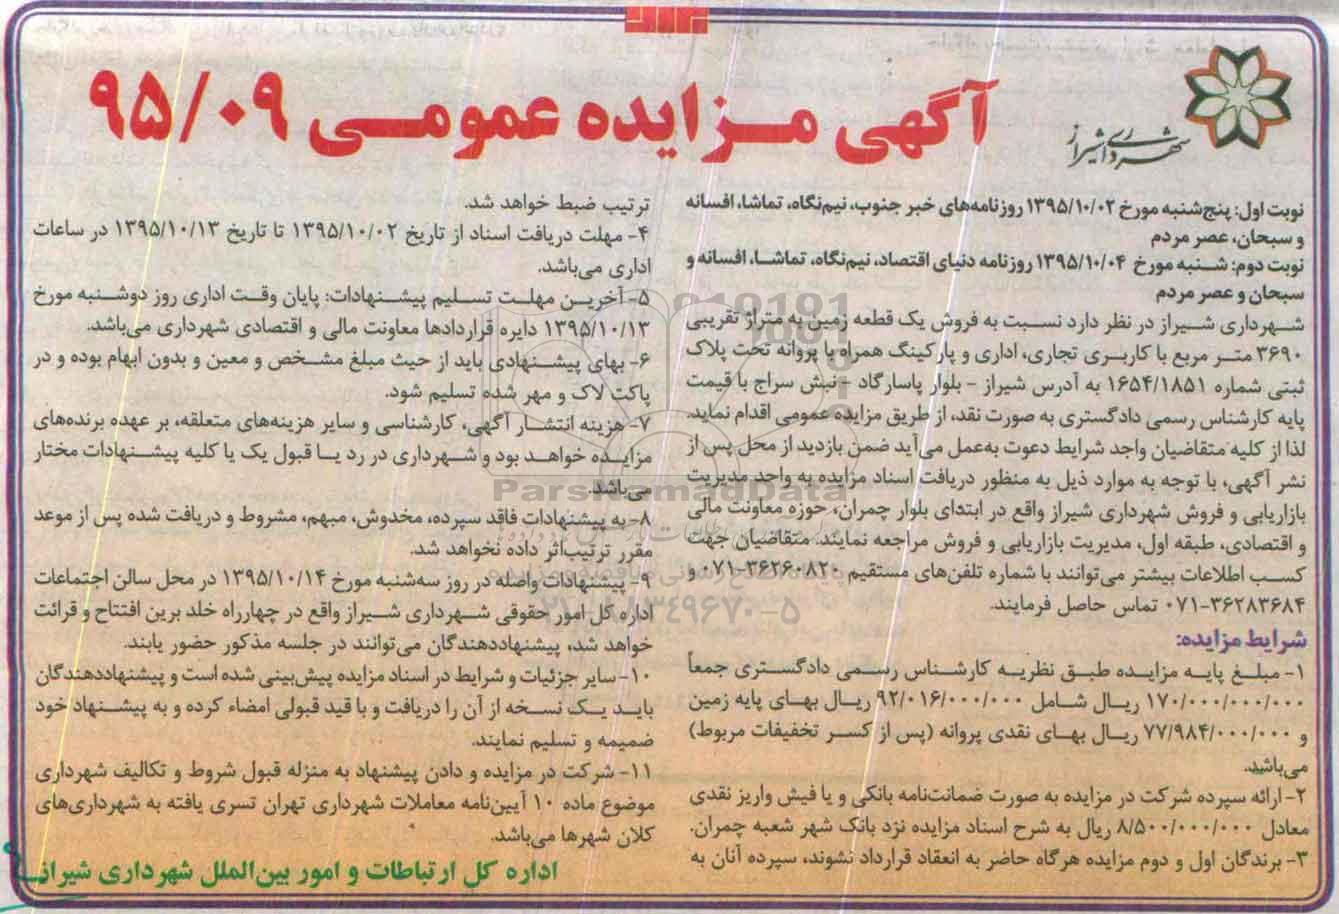 آگهی مزایده عمومی ۹۵/۰۹
شهرداری شیراز
نوبت اول: پنج‌شنبه مورخ ۱۳۹۵/۱۰/۰۲ روزنامه‌های خبر جنوب، نیم‌نگاه، تماشا، افسانه
و سبحان، عصر مردم
نوبت دوم: شنبه مورخ ۱۳۹۵/۱۰/۰۴ روزنامه دنیای اقتصاد، نیم‌نگاه، تماشا، افسانه و
سبحان و عصر مردم
شهرداری شیراز در نظر دارد نسبت به فروش یک قطعه زمین به متراژ تقریبی
۳۶۹۰ متر مربع با کاربری تجاری، اداری و پارکینگ همراه با پروانه تحت پلاک
ثبتی شماره ۱۶۵۴/۱۸۵۱ به آدرس شیراز - بلوار پاسارگاد - نبش سراج با قیمت
پایه کارشناس رسمی دادگستری به صورت نقد، از طریق مزایده عمومی اقدام نماید.
لذا از کلیه متقاضیان واجد شرایط دعوت به‌عمل می‌آید ضمن بازدید از محل پس از
نشر آگهی، با توجه به موارد ذیل به منظور دریافت اسناد مزایده به واحد مدیریت
بازاریابی و فروش شهرداری شیراز واقع در ابتدای بلوار چمران، حوزه معاونت مالی
و اقتصادی، طبقه اول، مدیریت بازاریابی و فروش مراجعه نمایند. متقاضیان جهت
کسب اطلاعات بیشتر می‌توانند با شماره تلفن‌های مستقیم ۳۶۲۶۰۸۲۰-۰۷۱ و
۳۶۲۸۳۶۸۴-۰۷۱ تماس حاصل فرمایند.
شرایط مزایده:
۱- مبلغ پایه مزایده طبق نظریه کارشناس رسمی دادگستری جمعاً
۱۷۰/۰۰۰/۰۰۰/۰۰۰ ریال شامل ۹۲/۰۱۶/۰۰۰/۰۰۰ ریال بهای پایه زمین
و ۷۷/۹۸۴/۰۰۰/۰۰۰ ریال بهای نقدی پروانه (پس از کسر تخفیفات مربوط)
می‌باشد.
۲- ارائه سپرده شرکت در مزایده به صورت ضمانت‌نامه بانکی و یا فیش واریز نقدی
معادل ۸/۵۰۰/۰۰۰/۰۰۰ ریال به شرح اسناد مزایده نزد بانک شهر شعبه چمران.
۳- برندگان اول و دوم مزایده هرگاه حاضر به انعقاد قرارداد نشوند، سپرده آنان به
ترتیب ضبط خواهد شد.
۴- مهلت دریافت اسناد از تاریخ ۱۳۹۵/۱۰/۰۲ تا تاریخ ۱۳۹۵/۱۰/۱۳ در ساعات
اداری می‌باشد.
۵- آخرین مهلت تسلیم پیشنهادات: پایان وقت اداری روز دوشنبه مورخ
۱۳۹۵/۱۰/۱۳ دایره قراردادها معاونت مالی و اقتصادی شهرداری می‌باشد.
۶- بهای پیشنهادی باید از حیث مبلغ مشخص و معین و بدون ابهام بوده و در
پاکت لاک و مهر شده تسلیم شود.
۷- هزینه انتشار آگهی، کارشناسی و سایر هزینه‌های متعلقه، بر عهده برنده‌های
مزایده خواهد بود و شهرداری در رد یا قبول یک یا کلیه پیشنهادات مختار
می‌باشد.
۸- به پیشنهادات فاقد سپرده، مخدوش، مبهم، مشروط و دریافت شده پس از موعد
مقرر ترتیب‌اثر داده نخواهد شد.
۹- پیشنهادات واصله در روز سه‌شنبه مورخ ۱۳۹۵/۱۰/۱۴ در محل سالن اجتماعات
اداره کل امور حقوقی شهرداری شیراز واقع در چهارراه خلد برین افتتاح و قرائت
خواهد شد، پیشنهاددهندگان می‌توانند در جلسه مذکور حضور یابند.
۱۰- سایر جزئیات و شرایط در اسناد مزایده پیش‌بینی شده است و پیشنهاددهندگان
باید یک نسخه از آن را دریافت و با قید قبولی امضاء کرده و به پیشنهاد خود
ضمیمه و تسلیم نمایند.
۱۱- شرکت در مزایده و دادن پیشنهاد به منزله قبول شروط و تکالیف شهرداری
موضوع ماده ۱۰ آیین‌نامه معاملات شهرداری تهران تسری یافته به شهرداری‌های
کلان شهرها می‌باشد.
اداره کل ارتباطات و امور بین‌الملل شهرداری شیراز
ParsNamadData